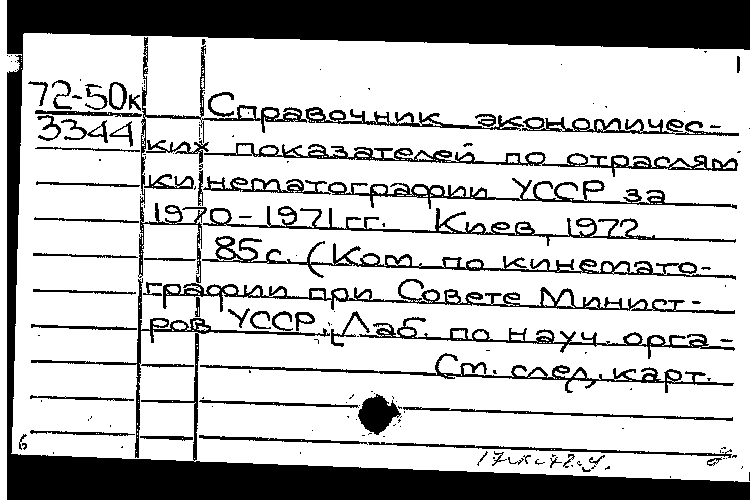 72-50к
3344
Справочник экономичес-
ких показателей по отраслям
кинематографии УССР за
1970-1971 гг. Киев, 1972.
85 с. (Ком. по кинемато-
графии при Совете Минист-
ров УССР. Лаб. по науч. орга-
См. след. карт.
6